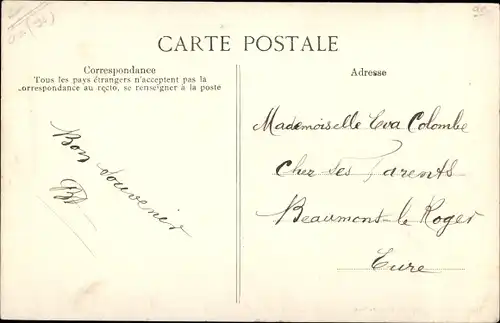 CARTE POSTALE
Correspondance
Tous les pays étrangers n'acceptent pas la
correspondance au recto, se renseigner à la poste
Bon souvenir
Adresse
Mademoiselle Eva Colombe
Chez ses Parents
Beaumont-le Roger
Eure